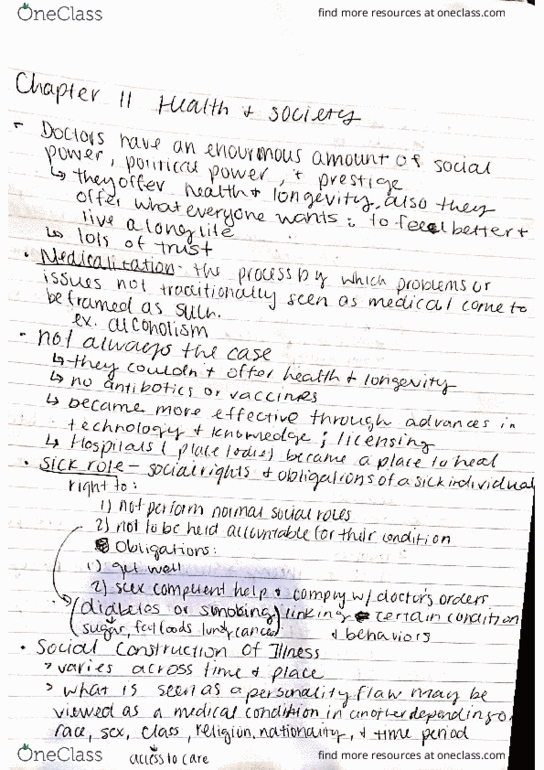 OneClass
find more resources at oneclass.com
Chapter 11 Health + society
- Doctors have an enourmous amount of social
power, political power, + prestige
↳ they offer health + longevity, also they
offer what everyone wants: to feel better +
live a long life
↳ lots of trust
• Medicalization- the process by which problems or
issues not traditionally seen as medical come to
be framed as such.
ex. alcoholism
• not always the case
↳ they couldn't offer health + longevity
↳ no antibotics or vaccines
↳ became more effective through advances in
technology + knowledge; licensing
↳ Hospitals (place to die) became a place to heal
• Sick role - social rights + obligations of a sick individual
right to:
1) not perform normal social roles
2) not to be held accountable for their condition
Obligations:
1) get well
2) seek competent help + comply w/ doctor's orders
(diabetes or smoking) linking certain condition
(sugar, fat foods lung cancer) + behaviors
• Social Construction of Illness
> varies across time + place
> what is seen as a personality flaw may be
viewed as a medical condition in another depending o
race, sex, class, religion, nationality, + time period
access to care
OneClass
find more resources at oneclass.com